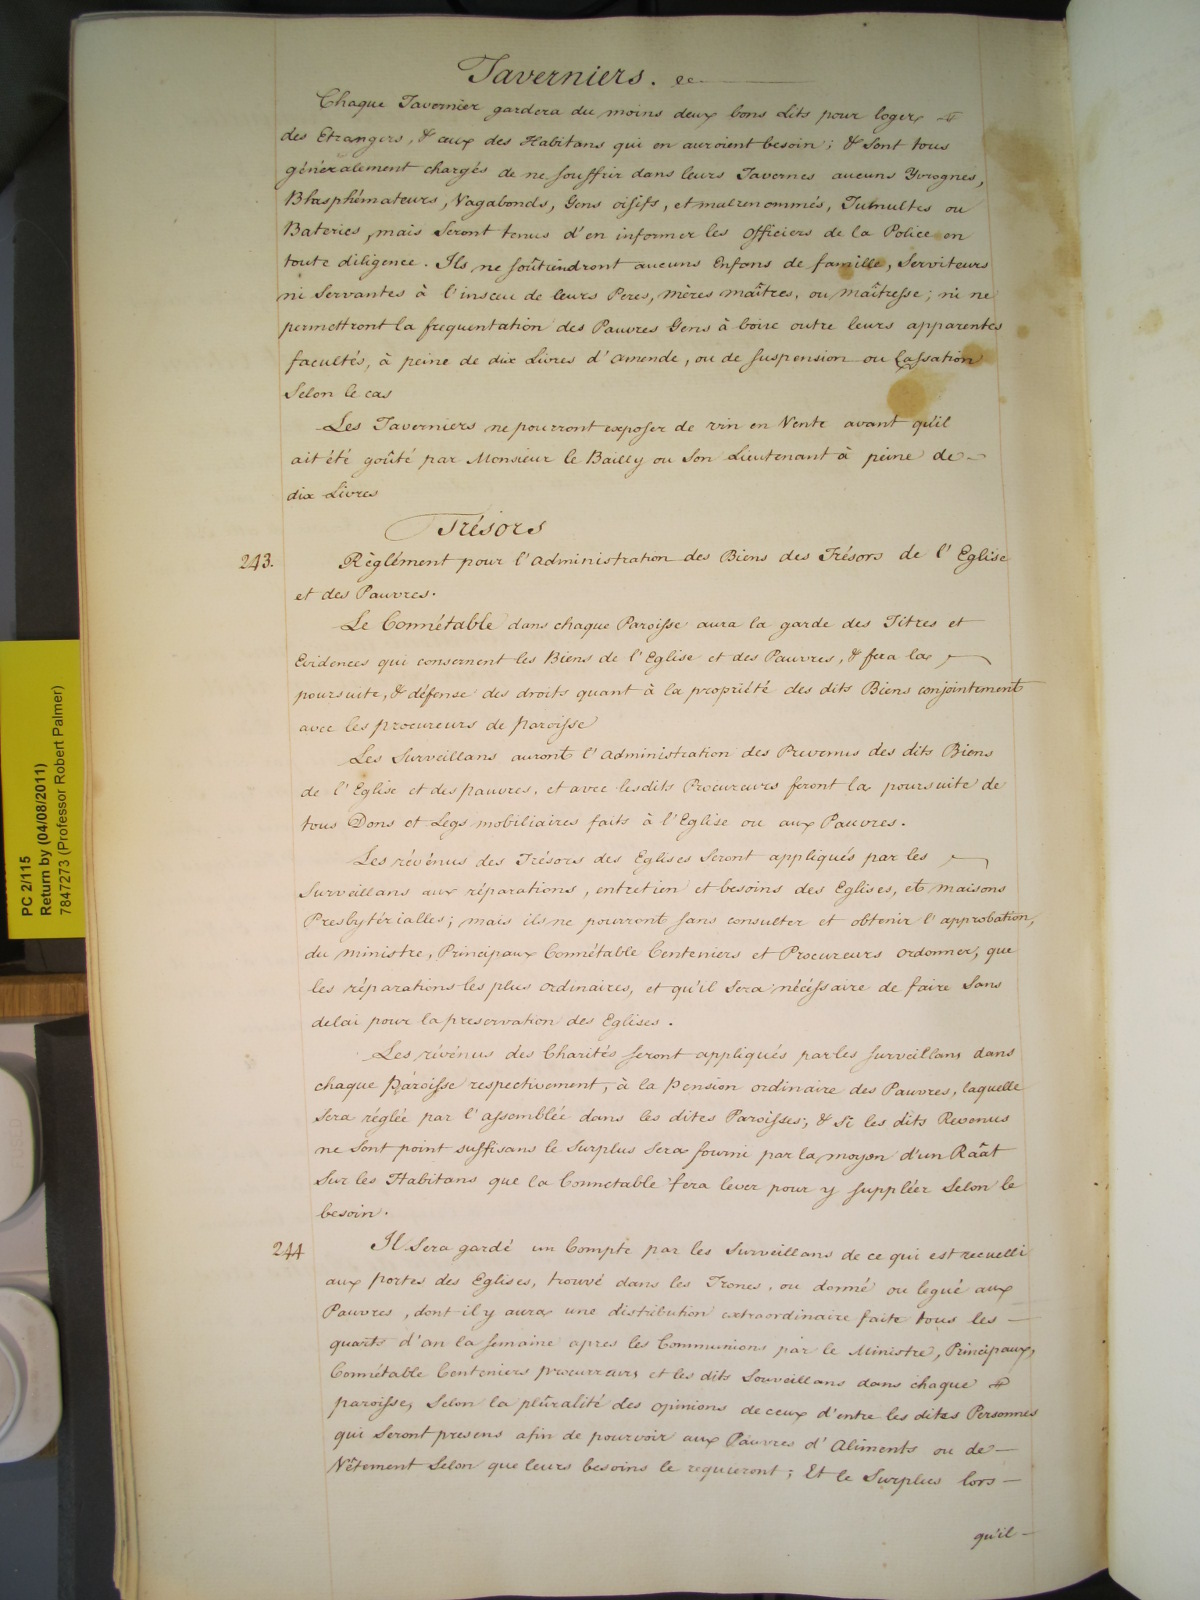 Taverniers. &c.
Chaque Tavernier gardera du moins deux bons Lits pour loger
des Etrangers, & aux des Habitans qui en auroient besoin; & sont tous
généralement chargés de ne souffrir dans leurs Tavernes aucuns Yvrognes,
Blasphémateurs, Vagabonds, Gens oisifs, et mal renommés, Tumultes ou
Bateries, mais seront tenus d'en informer les Officiers de la Police en
toute diligence. Ils ne soûtiendront aucuns Enfans de famille, Serviteurs
ni Servantes à l'insceu de leurs Peres, mères maîtres, ou maîtresse; ni ne
permettront la frequentation des Pauvres Gens à boire outre leurs apparentes
facultés, à peine de dix Livres d'amende, ou de suspension ou Cassation
Selon le cas
Les Taverniers ne pourront exposer de vin en Vente avant qu'il
ait été goûté par Monsieur le Bailly ou Son Lieutenant à peine de
dix Livres
Trésors
243. Règlément pour l'administration des Biens des Trésors de l'Eglise
et des Pauvres.
Le Connétable dans chaque Paroisse aura la garde des Titres et
Evidences qui consernent les Biens de l'Eglise et des Pauvres, & fera la
poursuite, & défense des droits quant à la propriété des dits Biens conjointement
avec les procureurs de paroisse
Les Surveillans auront l'administration des Revenus des dits Biens
de l'Eglise et des pauvres, et avec lesdits Procureurs feront la poursuite de
tous Dons et Legs mobiliaires faits à l'Eglise ou aux Pauvres.
Les révénus des Trésors des Eglises Seront appliqués par les
Surveillans aux réparations, entretien et besoins des Eglises, et maisons
Presbytérialles; mais ils ne pourront sans consulter et obtenir l'approbation,
du ministre, Principaux Connétable Centeniers et Procureurs ordonner, que
les réparations les plus ordinaires, et qu'il Sera nécéssaire de faire Sans
delai pour la preservation des Eglises.
Les révénus des Charités seront appliqués par les surveillans dans
chaque Paroisse respectivement, à la Pension ordinaire des Pauvres, laquelle
Sera réglée par l'assemblée dans les dites Paroisses; & Si les dits Revenus
ne Sont point suffisans le Surplus Sera fourni par la moyen d'un Raât
Sur les Habitans que la Connetable fera lever pour y suppléer Selon le
besoin.
244 Il Sera gardé un Compte par les Surveillans de ce qui est recueilli
aux portes des Eglises, trouvé dans les Troncs, ou donné ou legué aux
Pauvres, dont il y aura une distribution extraordinaire faite tous les
quarts d'an la semaine apres les Communions par le Ministre, Principaux,
Connétable Centeniers procureurs et les dits Souveillans dans chaque
paroisse, Selon la plûralité des opinions de ceux d'entre les dites Personnes
qui Seront presens afin de pourvoir aux Pauvres d'Aliments ou de
Vêtement Selon que leurs besoins le requieront; Et le Surplus lors
qu'il
PC 2/115
Return by (04/08/2011)
7847273 (Professor Robert Palmer)